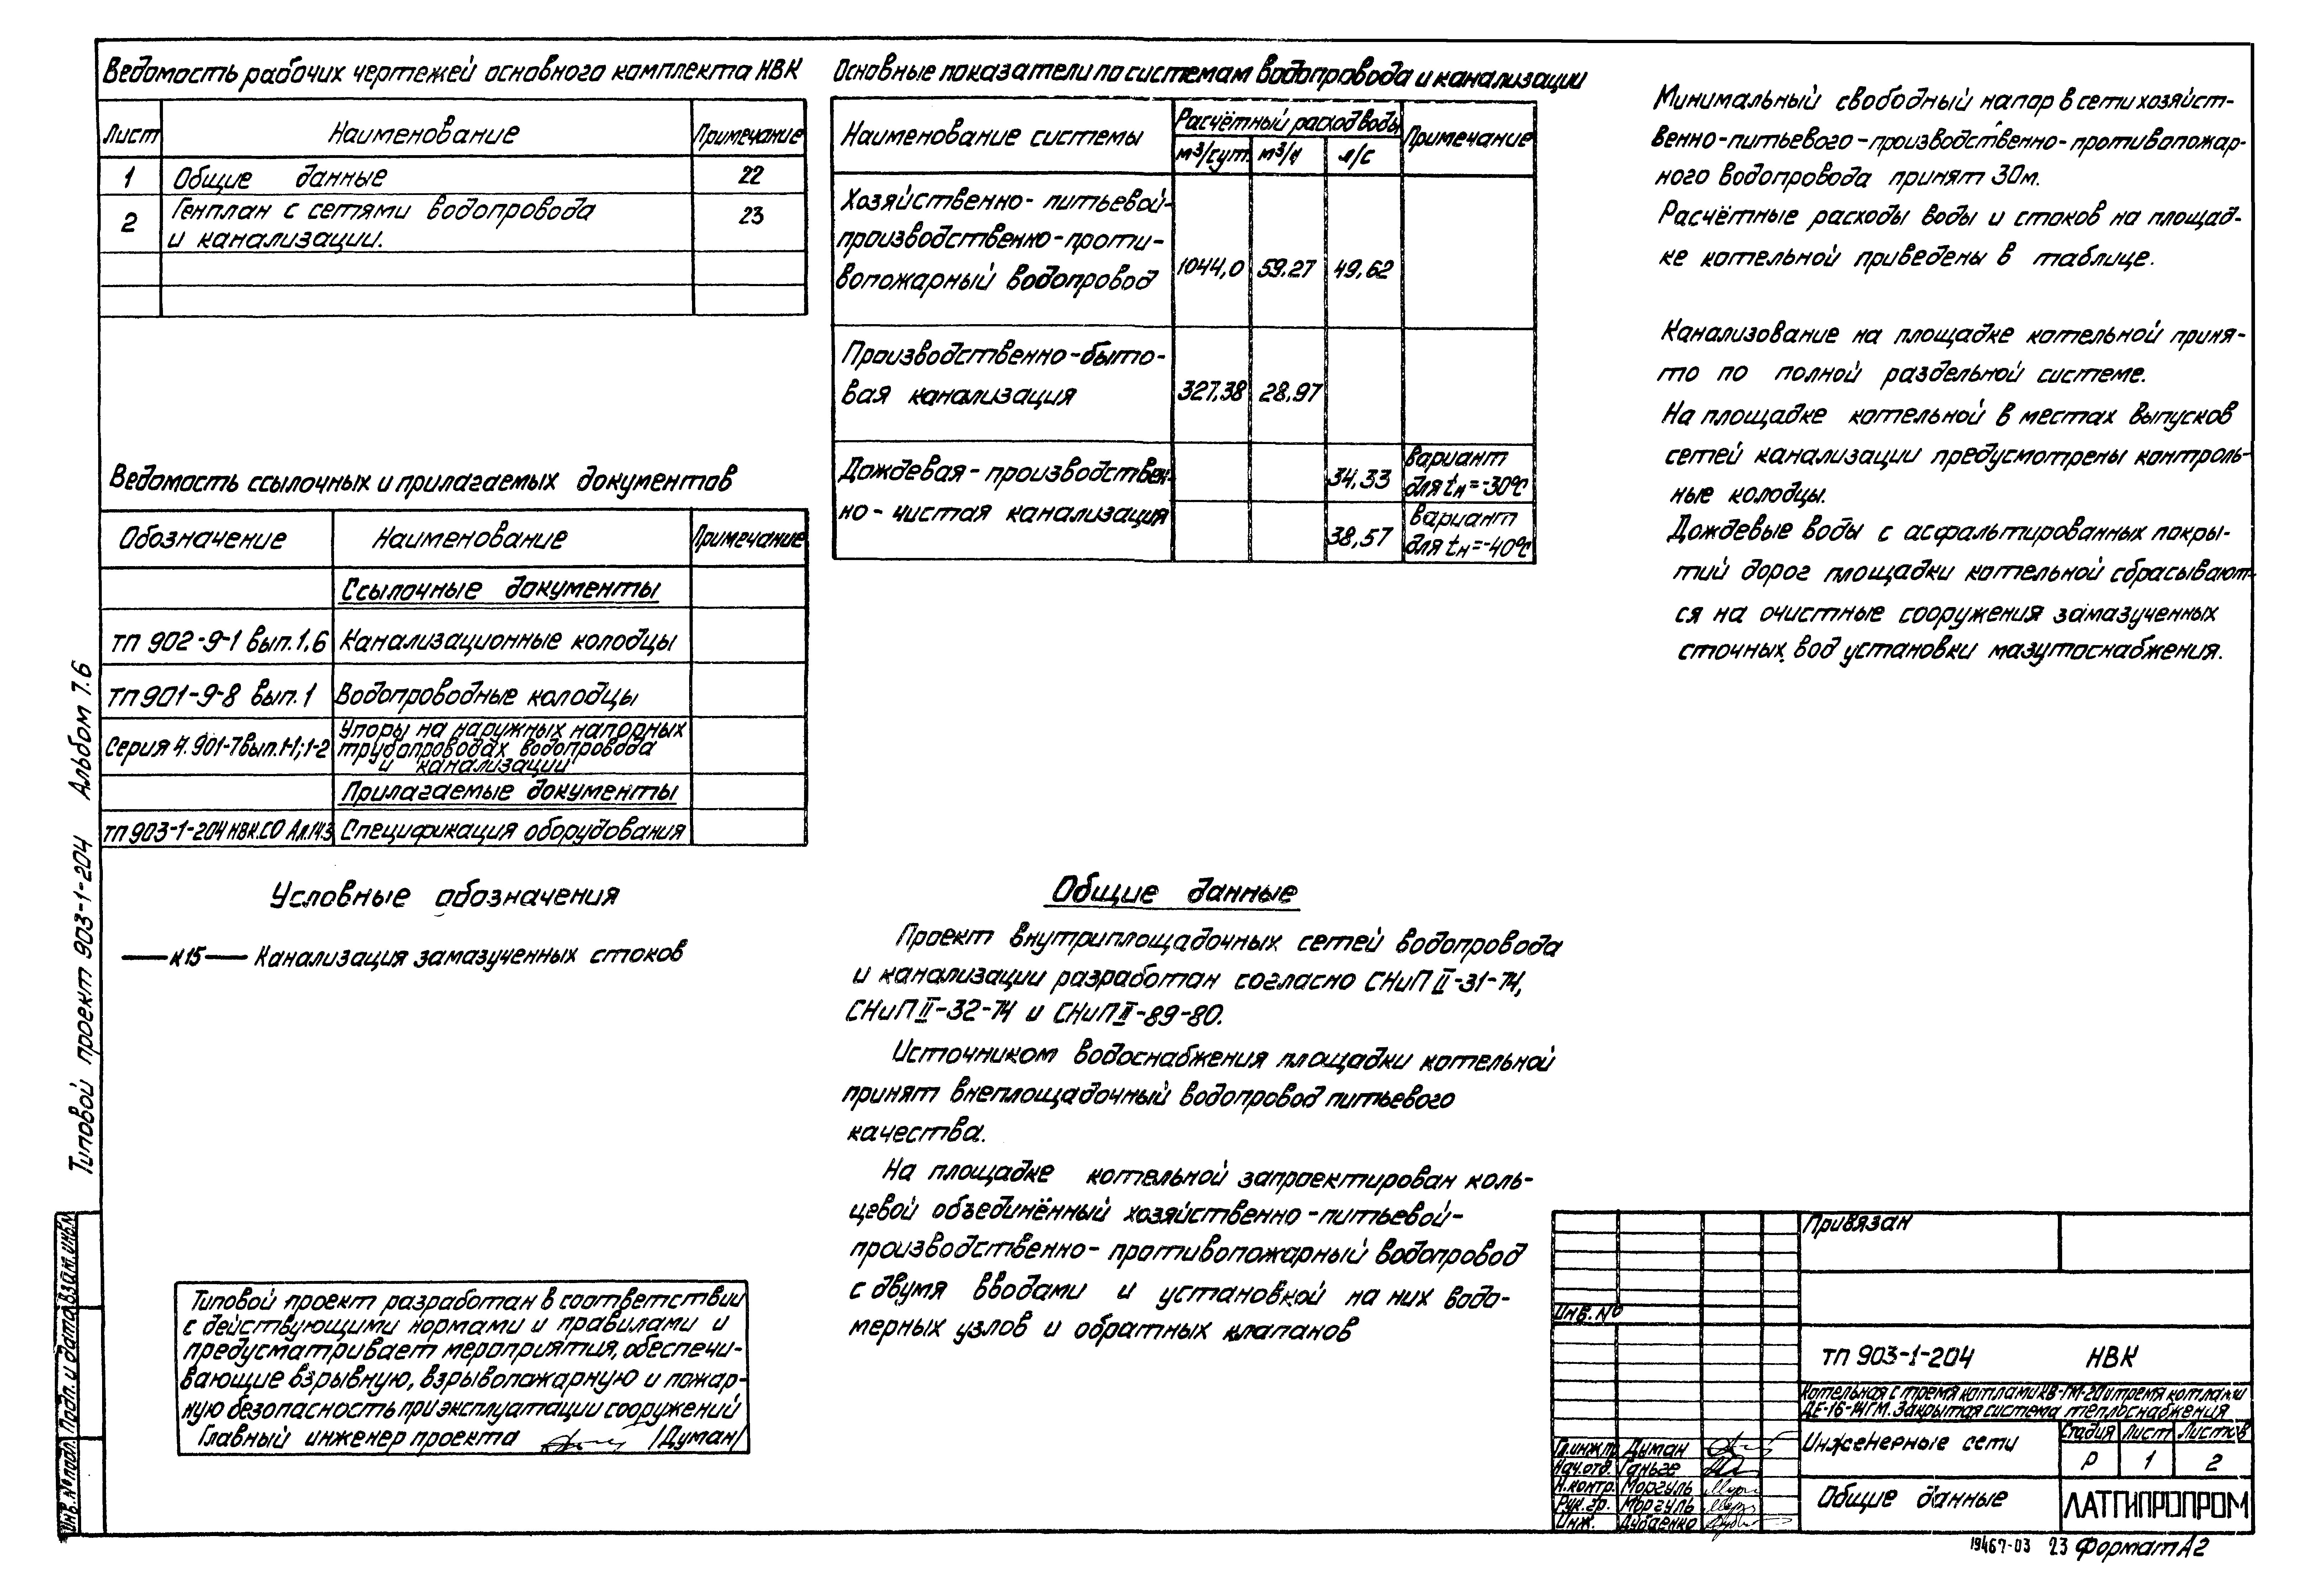 Ведомость рабочих чертежей основного комплекта НВК
Лист Наименование Примечание
1 Общие данные 22
2 Генплан с сетями водопровода 23
и канализации.
Ведомость ссылочных и прилагаемых документов
Обозначение Наименование Примечание
Ссылочные документы
ТП 902-9-1 вып.1,6 Канализационные колодцы
ТП 901-9-8 вып.1 Водопроводные колодцы
Серия 4.901-7 вып.1-1;1-2 Упоры на наружных напорных
трубопроводах водопровода
и канализации
Прилагаемые документы
ТП 903-1-204 НВК.СО Ал.14.3 Спецификация оборудования
Условные обозначения
К15 Канализация замазученных стоков
Типовой проект разработан в соответствии
с действующими нормами и правилами и
предусматривает мероприятия, обеспечи-
вающие взрывную, взрывопожарную и пожар-
ную безопасность при эксплуатации сооружений
Главный инженер проекта /Думан/
Основные показатели по системам водопровода и канализации
Наименование системы Расчётный расход воды Примечание
м³/сут. м³/ч л/с
Хозяйственно-питьевой-
производственно-проти-
вопожарный водопровод 1044,0 59.27 49,62
Производственно-быто-
вая канализация 327,38 28,97
Дождевая-производствен- 34,33 вариант для tн=-30°С
но-чистая канализация 38,57 вариант для tн=-40°С
Общие данные
Проект внутриплощадочных сетей водопровода
и канализации разработан согласно СНиП II-31-74,
СНиП II-32-74 и СНиП II-89-80.
Источником водоснабжения площадки котельной
принят внеплощадочный водопровод питьевого
качества.
На площадке котельной запроектирован коль-
цевой объединённый хозяйственно-питьевой-
производственно-противопожарный водопровод
с двумя вводами и установкой на них водо-
мерных узлов и обратных клапанов
Минимальный свободный напор в сети хозяйст-
венно-питьевого-производственно-противопожар-
ного водопровода принят 30м.
Расчётные расходы воды и стоков на площад-
ке котельной приведены в таблице.
Канализование на площадке котельной приня-
то по полной раздельной системе.
На площадке котельной в местах выпусков
сетей канализации предусмотрены контроль-
ные колодцы.
Дождевые воды с асфальтированных покры-
тий дорог площадки котельной сбрасывают-
ся на очистные сооружения замазученных
сточных вод установки мазутоснабжения.
Типовой проект 903-1-204 Альбом 7.6
Инв.№ подл. Подп. и дата Взам.инв.№
Привязан
Инв.№
ТП 903-1-204 НВК
Котельная с тремя котлами КВ-ГМ-20 и тремя котлами
ДЕ-16-14ГМ. Закрытая система теплоснабжения
Инженерные сети Стадия Лист Листов
Р 1 2
Общие данные ЛАТГИПРОПРОМ
Гл.инж.пр. Думан
Нач.отд. Ганьге
Н.контр. Моргуль
Рук.гр. Моргуль
Инж. Дубаенко
19467-03 23 Формат А2